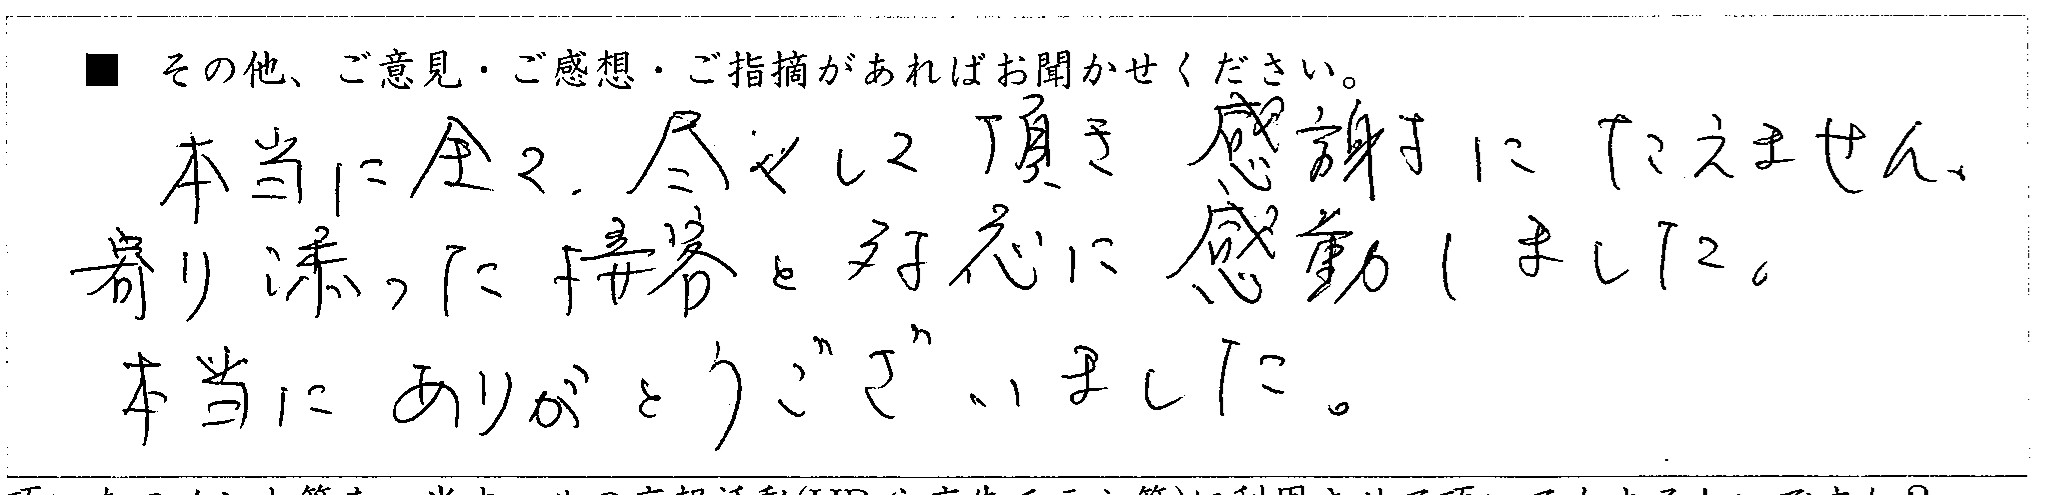 ■ その他、ご意見・ご感想・ご指摘があればお聞かせください。
本当に全て、尽やして頂き 感謝にたえません。
寄り添った接客と対応に感動しました。
本当にありがとうございました。